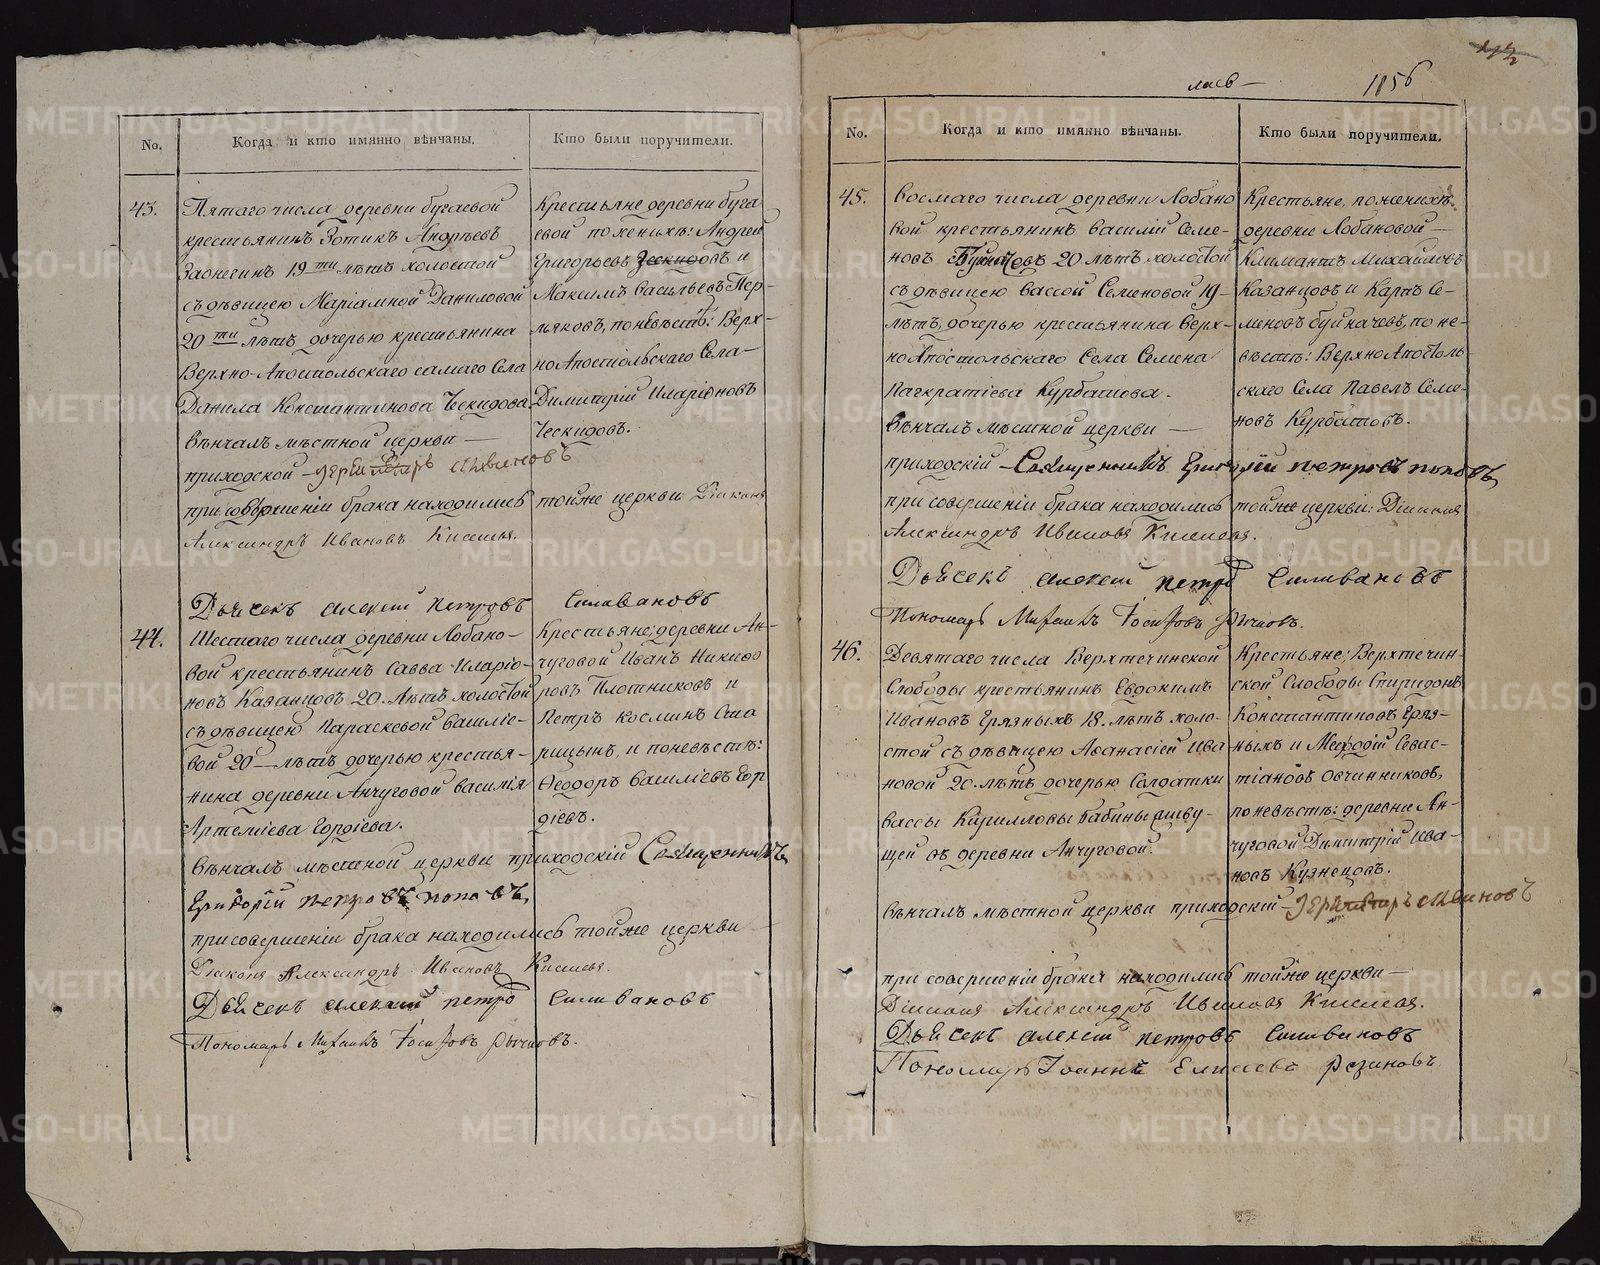 No.
Когда и кто имянно вѣнчаны.
Кто были поручители.
43.
Пятаго числа деревни бугаевой
крестьянинъ Зотикъ Андрѣевъ
19 ти лѣтъ холостой
съ дѣвицею Маріамной Даниловой
20 ти лѣтъ дочерью крестьянина
Верхно-Апостольскаго самаго Села
Данила Константинова Ческидова.
Вѣнчалъ мѣстной церкви —
приходской
при совершеніи брака находились
Александръ Ивановъ Киселевъ.
Дьячекъ алексій петровъ
Крестьяне деревни буга
евой по женихѣ: Андрей
Григорьевъ и
Максимъ Васильевъ Пер-
мяковъ, по невѣстѣ: Верх-
ноАпостольскаго Села —
Димитрій Иларіоновъ
Ческидовъ.
тойже церкви Діаконъ
Силивановъ
44.
Шестаго числа деревни Лобано-
вой крестьянинъ Савва Иларіо-
новъ Казанцовъ 20. лѣтъ холостой
съ дѣвицею Параскевой Василіе-
вой 20 — лѣтъ дочерью крестья-
нина деревни Анчуговой Василія
Артеміева Гордіева.
Вѣнчалъ мѣстной церкви приходскій Священникъ
Григорій петровъ поповъ,
при совершеніи брака находились тойже церкви
Діаконъ Александръ Ивановъ Киселевъ.
Дьячекъ алексій петровъ Силивановъ
Пономарь Михаилъ Іосифовъ
Крестьяне; деревни Ан-
чуговой Иванъ Никифо
ровъ Плотниковъ и
Петръ Косминъ Ста
рицынъ, и по невѣстѣ:
Ѳеодоръ Василіевъ Гор
діевъ.
1856
No.
Когда и кто имянно вѣнчаны.
Кто были поручители.
45.
Восмаго числа деревни Лобано
вой крестьянинъ Василій Семе-
новъ 20 лѣтъ холостой
съ дѣвицею Вассой Семеновой 19-
лѣтъ, дочерью крестьянина Верх-
ноАпостольскаго Села Семена
Панкратіева Курбатова.
Вѣнчалъ мѣстной церкви —
приходскій — Священникъ Григорій петровъ поповъ
при совершеніи брака находились тойже церкви: Діаконъ
Александръ Ивановъ Киселевъ.
Дьячекъ алексій петровъ Силивановъ
Пономарь Михаилъ Іосифовъ
Крестьяне, по женихѣ
деревни Лобановой —
Климантъ Михайловъ
Казанцовъ и Карпъ Се-
меновъ буйначевъ, по не-
вѣстѣ: ВерхноАпостоль-
скаго Села Павелъ Семе-
новъ Курбатовъ.
46.
Девятаго числа Верхтечинской
Слободы крестьянинъ Евдокимъ
Ивановъ Грязныхъ 18. лѣтъ холо-
стой съ дѣвицею Аѳанасіей Ива
новой 20. лѣтъ дочерью Солдатки
Вассы Кирилловы бабины живу-
щей въ деревни Анчуговой.
Вѣнчалъ мѣстной церкви приходскій —
при совершеніи брака находились тойже церкви —
Діаконъ Александръ Ивановъ Киселевъ.
Дьячекъ алексій петровъ Силивановъ
Пономарь Іоаннъ Елисеевъ
Крестьяне; Верхтечин-
ской Слободы Спиридонъ
Константиновъ Гряз-
ныхъ и Меѳодій Севас-
тіановъ Овчинниковъ,
по невѣстѣ: деревни Ан-
чуговой Димитрій Ива-
новъ Кузнецовъ.
METRIKI.GASO-URAL.RU